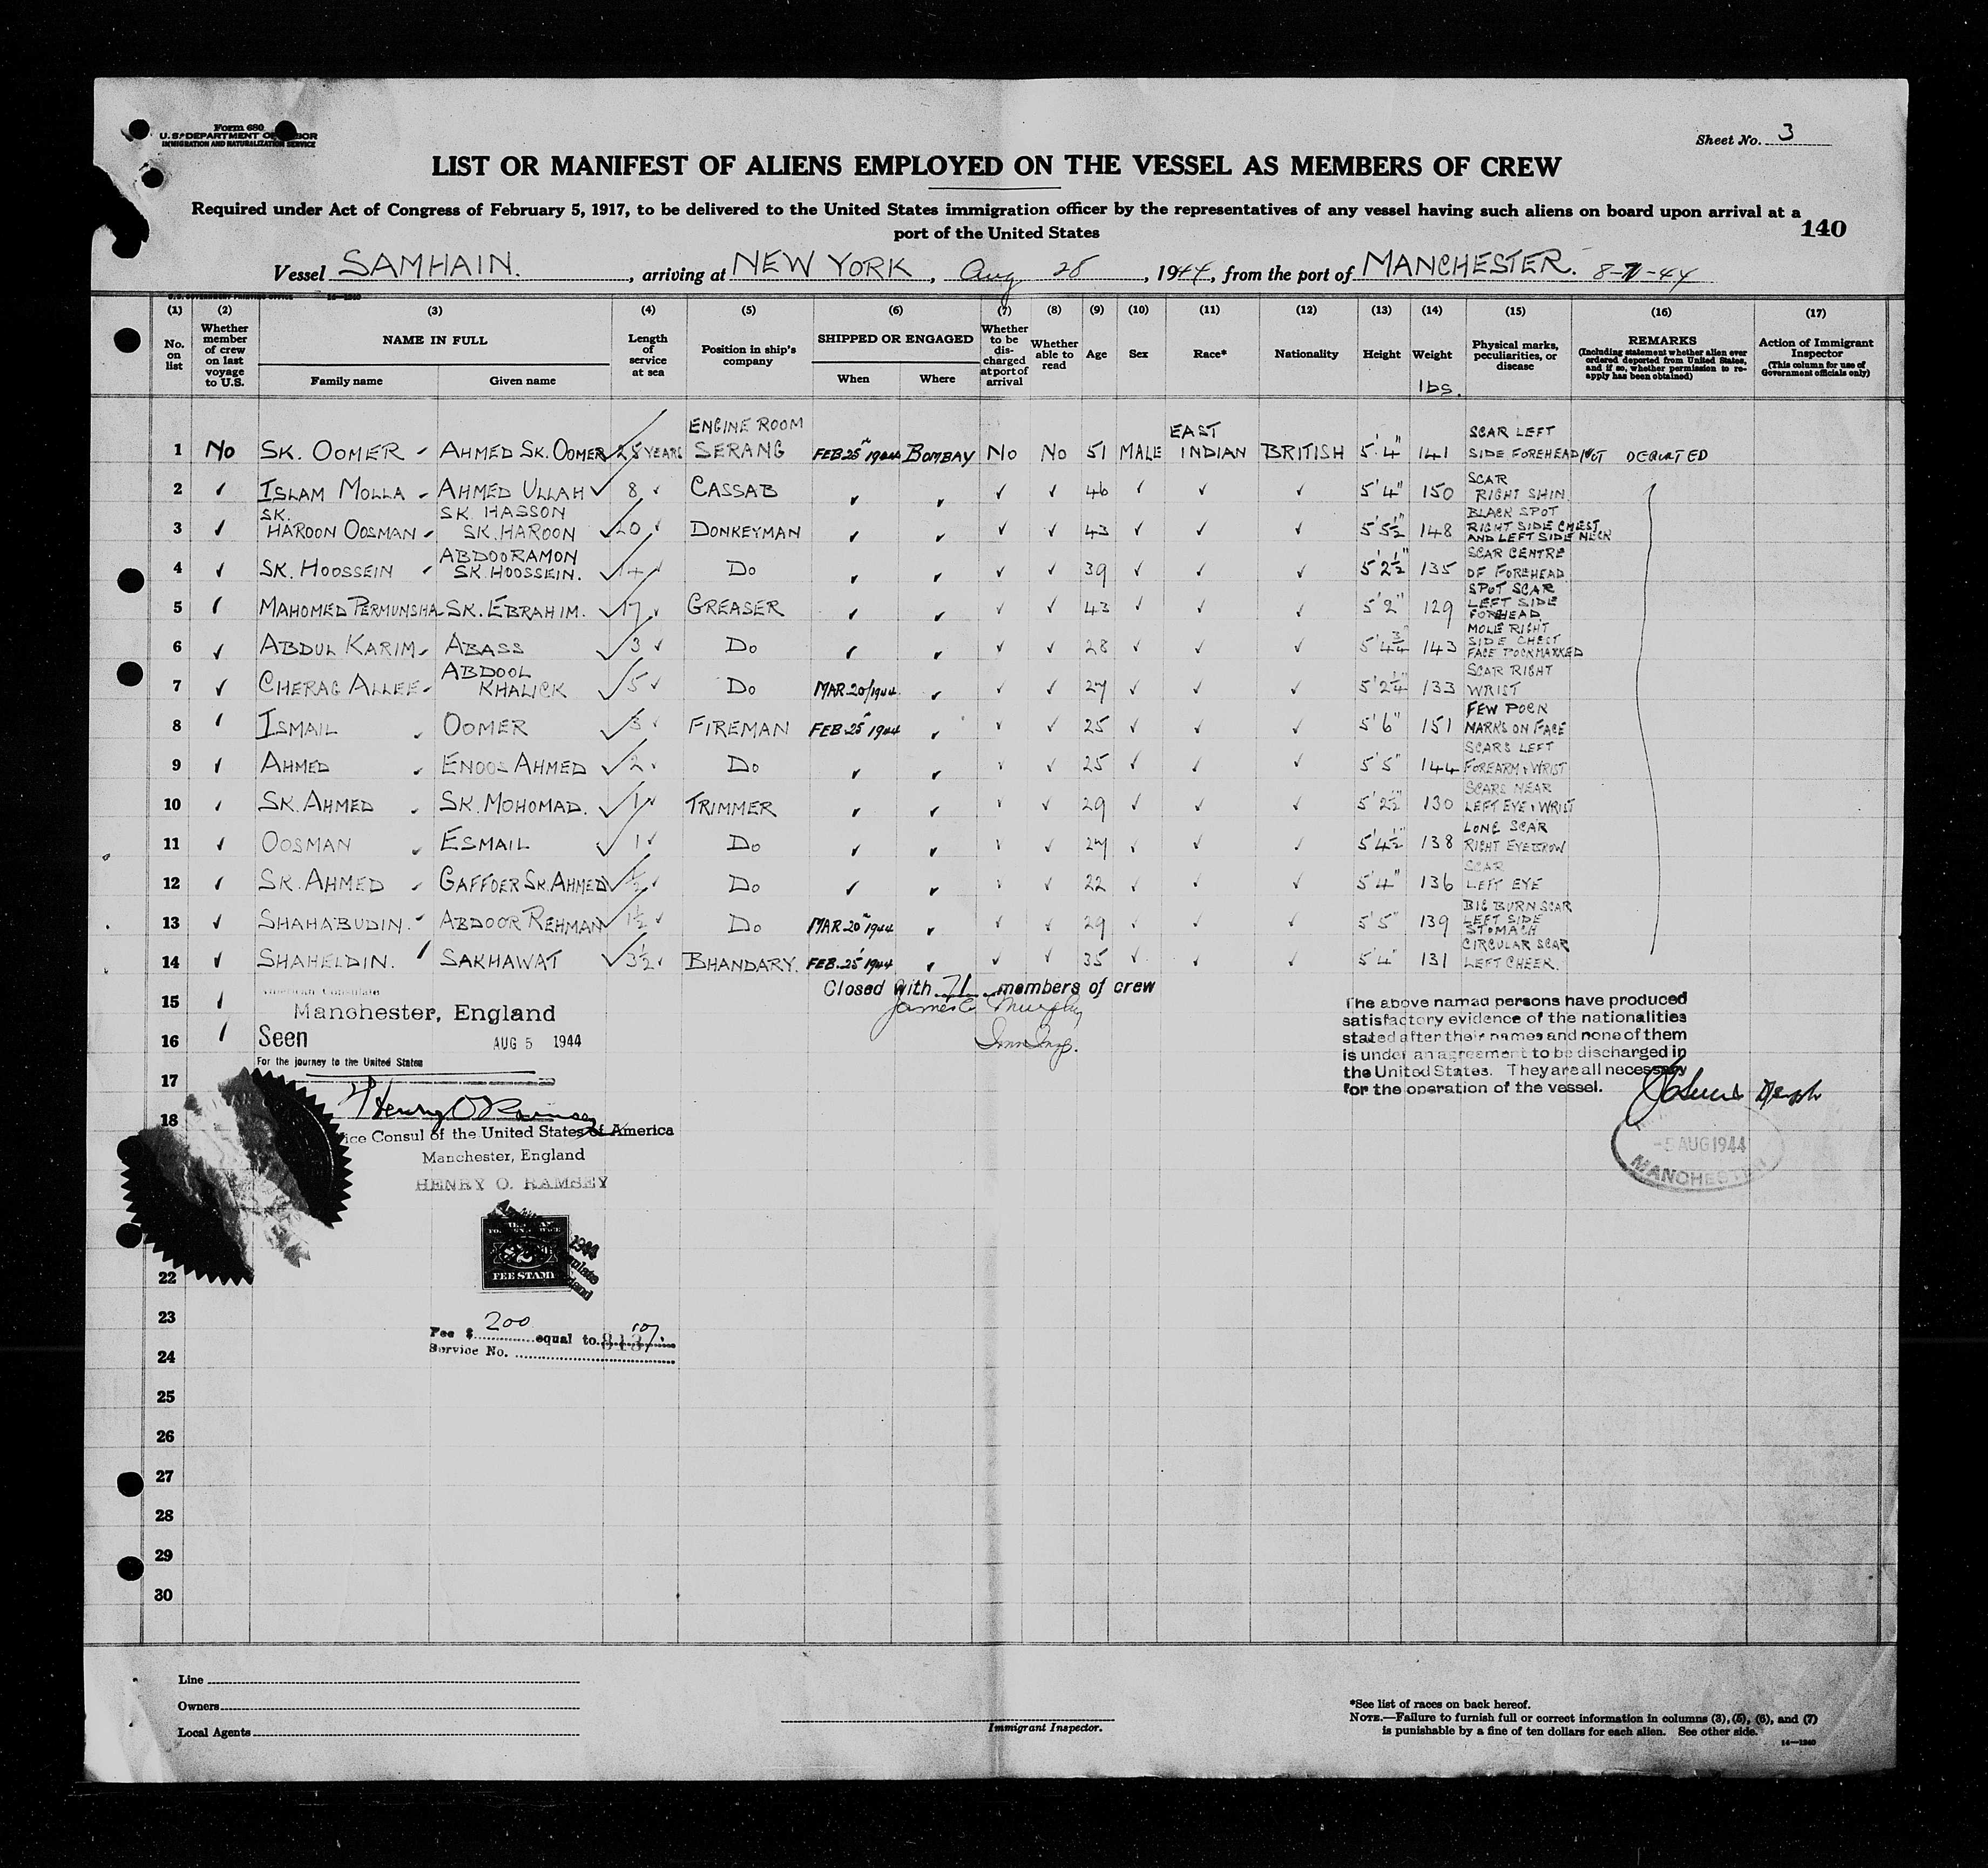 Form 680
U. S. DEPARTMENT OF LABOR
IMMIGRATION AND NATURALIZATION SERVICE
Sheet No. 3
LIST OR MANIFEST OF ALIENS EMPLOYED ON THE VESSEL AS MEMBERS OF CREW
Required under Act of Congress of February 5, 1917, to be delivered to the United States immigration officer by the representatives of any vessel having such aliens on board upon arrival at a
port of the United States
140
Vessel SAMHAIN. , arriving at NEW YORK , Aug 28 , 1944, from the port of MANCHESTER. 8-7-44
U. S. GOVERNMENT PRINTING OFFICE 14—1240
(1) (2) (3) (4) (5) (6) (7) (8) (9) (10) (11) (12) (13) (14) (15) (16) (17)
No. on list
Whether member of crew on last voyage to U.S.
NAME IN FULL
Family name
Given name
Length of service at sea
Position in ship's company
SHIPPED OR ENGAGED
When
Where
Whether to be discharged at port of arrival
Whether able to read
Age
Sex
Race*
Nationality
Height
Weight
lbs.
Physical marks, peculiarities, or disease
REMARKS
(Including statement whether alien ever ordered deported from United States, and if so, whether permission to re-apply has been obtained)
Action of Immigrant Inspector
(This column for use of Government officials only)
1 No SK. OOMER - AHMED SK. OOMER ✓ 25 YEARS ENGINE ROOM SERANG FEB 25 1944 BOMBAY NO NO 51 MALE EAST INDIAN BRITISH 5'4" 141 SCAR LEFT SIDE FOREHEAD
2 ✓ ISLAM MOLLA - AHMED ULLAH ✓ 8 ✓ CASSAB ✓ ✓ ✓ ✓ 46 ✓ ✓ ✓ 5'4" 150 SCAR RIGHT SHIN
3 ✓ SK. HAROON OOSMAN - SK. HASSON SK. HAROON ✓ 20 ✓ DONKEYMAN ✓ ✓ ✓ ✓ 43 ✓ ✓ ✓ 5'5½" 148 BLACK SPOT RIGHT SIDE CHEST AND LEFT SIDE NECK
4 ✓ SK. HOOSSEIN - ABDOORAMON SK. HOOSSEIN. ✓ 14 ✓ DO ✓ ✓ ✓ ✓ 39 ✓ ✓ ✓ 5'2½" 135 SCAR CENTRE OF FOREHEAD
5 ✓ MAHOMED PERMUNSHA - SK. EBRAHIM. ✓ 17 ✓ GREASER ✓ ✓ ✓ ✓ 43 ✓ ✓ ✓ 5'2" 129 SPOT SCAR LEFT SIDE FOREHEAD
6 ✓ ABDUL KARIM - ABASS ✓ 3 ✓ DO ✓ ✓ ✓ ✓ 28 ✓ ✓ ✓ 5'4¾" 143 MOLE RIGHT SIDE CHEST FACE POCKMARKED
7 ✓ CHERAG ALLEE - ABDOOL KHALICK ✓ 5 ✓ DO MAR 20/1944 ✓ ✓ ✓ 27 ✓ ✓ ✓ 5'2¼" 133 SCAR RIGHT WRIST
8 ✓ ISMAIL - OOMER ✓ 3 ✓ FIREMAN FEB 25 1944 ✓ ✓ ✓ 25 ✓ ✓ ✓ 5'6" 151 FEW POCK MARKS ON FACE
9 ✓ AHMED - ENOOS AHMED ✓ 2 ✓ DO ✓ ✓ ✓ ✓ 25 ✓ ✓ ✓ 5'5" 144 SCARS LEFT FOREARM & WRIST
10 ✓ SK. AHMED - SK. MOHOMAD. ✓ 1 ✓ TRIMMER ✓ ✓ ✓ ✓ 29 ✓ ✓ ✓ 5'2½" 130 SCARS NEAR LEFT EYE & WRIST
11 ✓ OOSMAN - ESMAIL ✓ 1 ✓ DO ✓ ✓ ✓ ✓ 27 ✓ ✓ ✓ 5'4½" 138 LONG SCAR RIGHT EYEBROW
12 ✓ SK. AHMED - GAFFOER SK. AHMED ✓ ½ ✓ DO ✓ ✓ ✓ ✓ 22 ✓ ✓ ✓ 5'4" 136 SCAR LEFT EYE
13 ✓ SHAHABUDIN. - ABDOOR REHMAN ✓ 1½ ✓ DO MAR 20 1944 ✓ ✓ ✓ 29 ✓ ✓ ✓ 5'5" 139 BIG BURN SCAR LEFT SIDE STOMACH
14 ✓ SHAHELDIN. SAKHAWAT ✓ 3½ ✓ BHANDARY. FEB. 25 1944 ✓ ✓ ✓ 35 ✓ ✓ ✓ 5'4" 131 CIRCULAR SCAR LEFT CHEEK.
15 ✓
16 ✓
17
18
22
23
24
25
26
27
28
29
30
Closed with 71 members of crew
James C. Murphy
Imm Insp.
American Consulate
Manchester, England
Seen AUG 5 1944
For the journey to the United States
Henry O Ramsey
Vice Consul of the United States of America
Manchester, England
HENRY O. RAMSEY
FEE STAMP
Fee $ 200 equal to
Service No.
The above named persons have produced
satisfactory evidence of the nationalities
stated after their names and none of them
is under an agreement to be discharged in
the United States. They are all necessary
for the operation of the vessel.
-5 AUG 1944
MANCHESTER
Line
Owners
Local Agents
Immigrant Inspector.
*See list of races on back hereof.
NOTE.—Failure to furnish full or correct information in columns (3), (5), (6), and (7)
is punishable by a fine of ten dollars for each alien. See other side.
14—1240